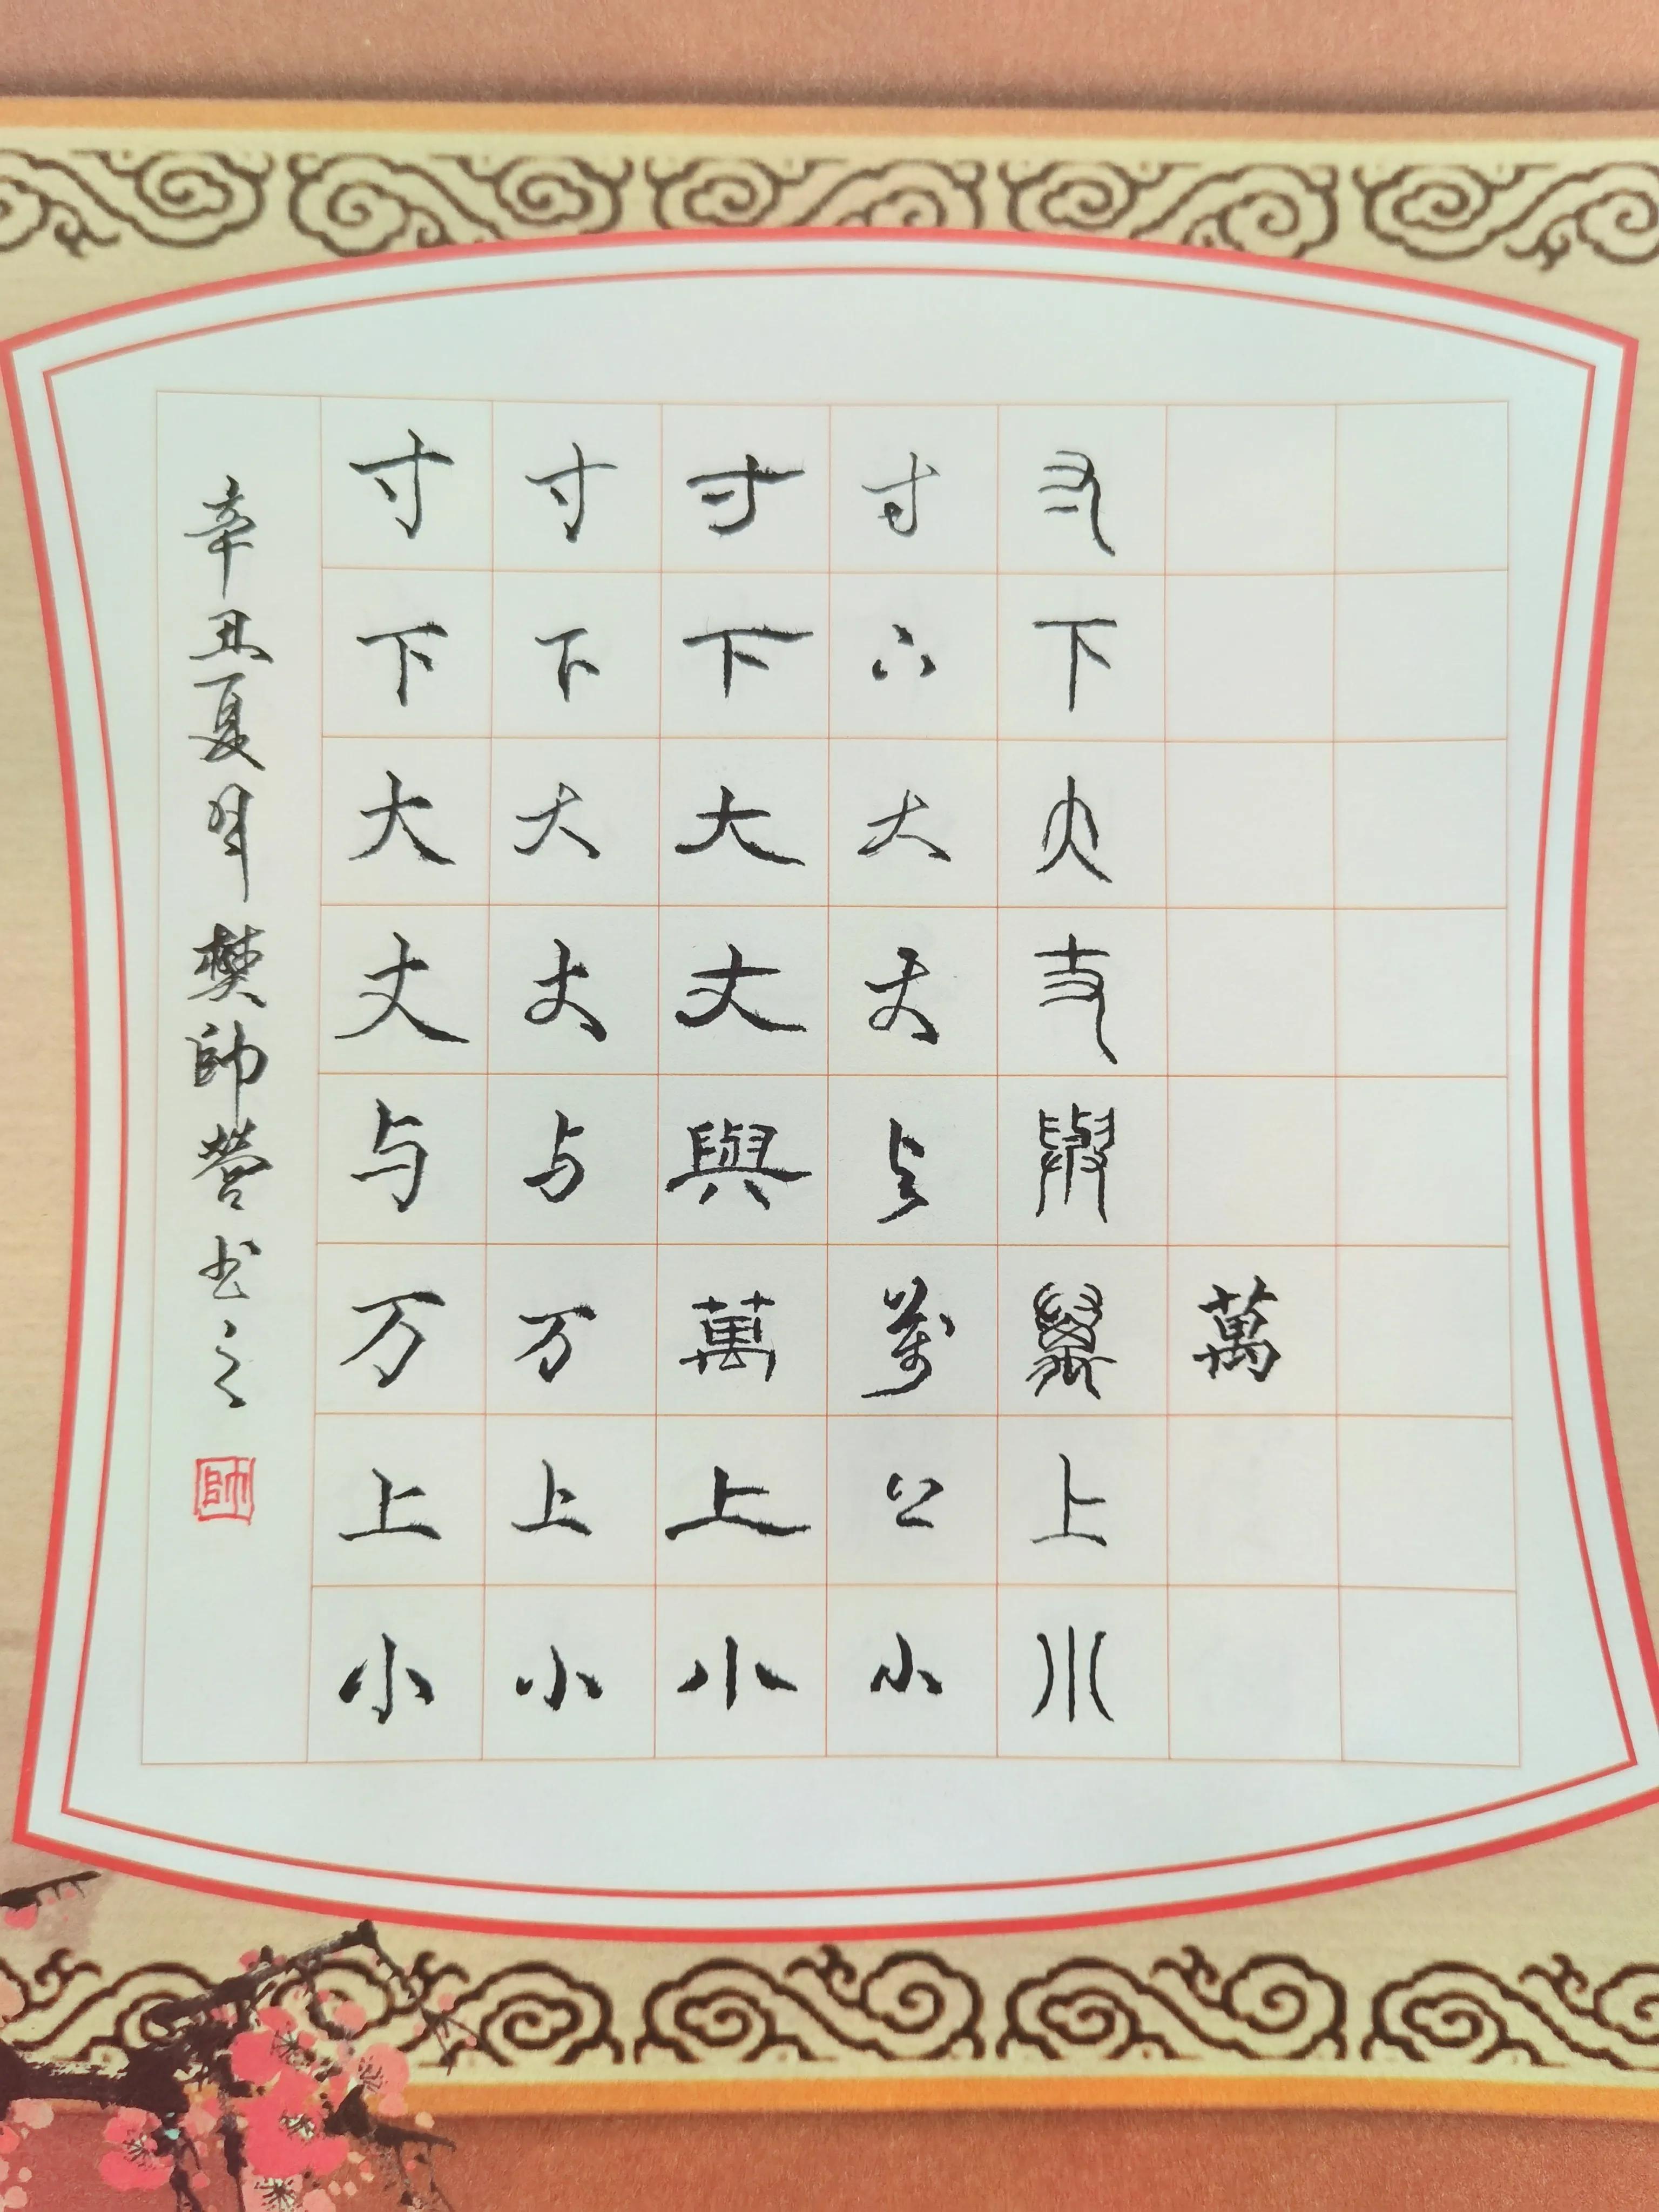 萬
寸下大丈與萬上小
寸下大丈与萬上小
寸下大丈與萬上小
寸下大丈与万上小
寸下大丈与万上小
辛丑夏年樊師營书之
師